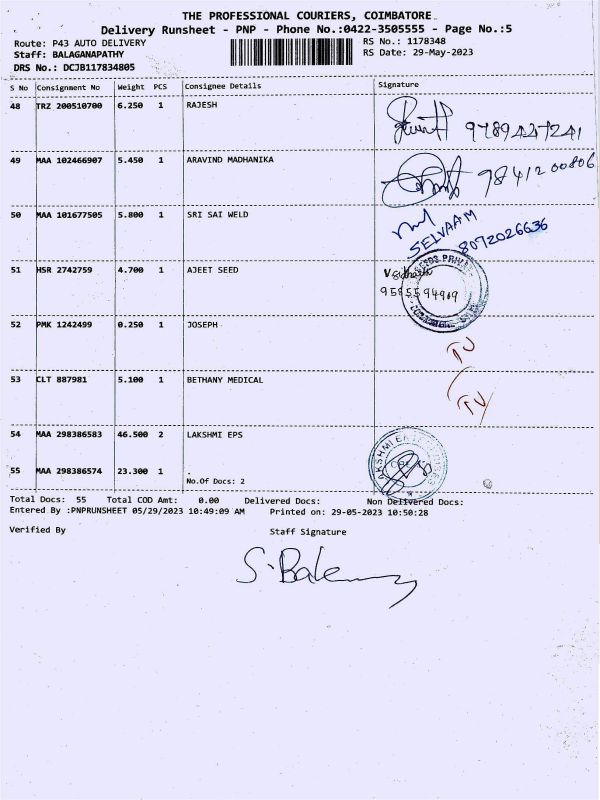 THE PROFESSIONAL COURIERS, COIMBATORE.
Delivery Runsheet - PNP - Phone No.:0422-3505555 - Page No.:5
Route: P43 AUTO DELIVERY RS No.: 1178348
Staff: BALAGANAPATHY RS Date: 29-May-2023
DRS No.: DCJB117834805
S No Consignment No Weight PCS Consignee Details Signature
48 TRZ 200510700 6.250 1 RAJESH
9789427241
49 MAA 102466907 5.450 1 ARAVIND MADHANIKA
9841200806
50 MAA 101677505 5.800 1 SRI SAI WELD
SELVAAM
8072026636
51 HSR 2742759 4.700 1 AJEET SEED
9585594919
52 PMK 1242499 0.250 1 JOSEPH
53 CLT 887981 5.100 1 BETHANY MEDICAL
54 MAA 298386583 46.500 2 LAKSHMI EPS
55 MAA 298386574 23.300 1
No.Of Docs: 2
Total Docs: 55 Total COD Amt: 0.00 Delivered Docs: Non Delivered Docs:
Entered By :PNPRUNSHEET 05/29/2023 10:49:09 AM Printed on: 29-05-2023 10:50:28
Verified By Staff Signature